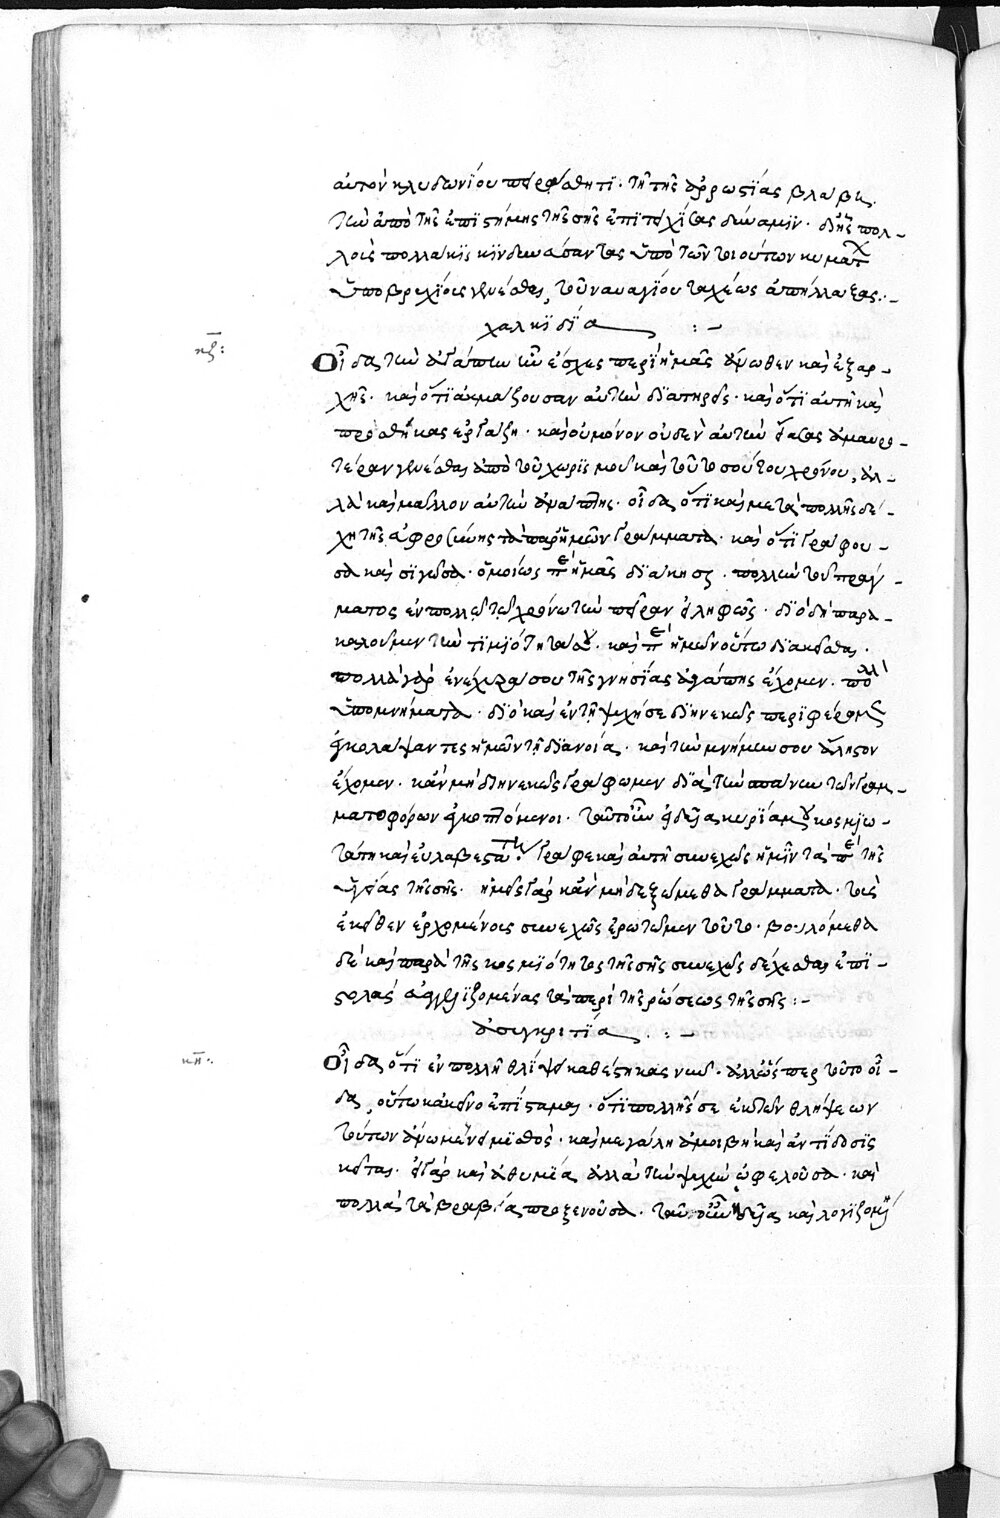 αὐτὸν κλυδωνίου πειραθῆτι· τῆ τῆς ἀῤῥωστίας βλάβη
τὴν ἀπὸ τῆς ἐπιστήμης τῆς σῆς ἐπιτειχίσας δύναμιν· δι' ἧς πολ-
λοὺς πολλάκις κινδυνεύσαντας ὑπὸ τῶν τοιούτων κυμάτ
ὑποβρυχίους γενέσθαι, τοῦ ναυαγίου ταχέως ἀπήλλαξας:-
χαλκιδία :-
κζ:
Οἶδας τὴν ἀγάπην ἣν ἔσχες περὶ ἡμᾶς ἄνωθεν καὶ ἐξαρ-
χῆς· καὶ ὅτι ἀκμάζουσαν αὐτὴν διατηρεῖς· καὶ ὅτι αὐτῆ καὶ
προσθήκας ἐργάζη· καὶ οὐ μόνον οὐδὲν αὐτὴν εἴασας ἀμαυρο-
τέραν γενέσθαι ἀπὸ τοῦ χωρισμοῦ καὶ τοῦ τοσούτου χρόνου, ἀλ-
λὰ καὶ μᾶλλον αὐτὴν ἀνάπτεις· οἶδας ὅτι καὶ μετὰ πολλῆς δέ-
χη τῆς εὐφροσύνης τὰ παρ' ἡμῶν γράμματα· καὶ ὅτι γράφου-
σα καὶ σιγῶσα· ὁμοίως περὶ ἡμᾶς διάκησαι· πολλὴν τοῦ πράγ-
ματος ἐν πολλῶ τῶ χρόνω τὴν πεῖραν εἰληφώς· διὸ δὴ παρα-
καλοῦμεν τὴν τιμιότητά σου· καὶ περὶ ἡμῶν οὕτω διακεῖσθαι·
πολλὰ γὰρ ἐνέχυρά σου τῆς γνησίας ἀγάπης ἔχομεν· πολλὰ
ὑπομνήματα· διὸ καὶ ἐν τῆ ψυχῆ σε διηνεκῶς περιφέρομεν
ἐγκολάψαντες ἡμῶν τῆ διανοία· καὶ τὴν μνήμην σου ἄληστον
ἔχομεν· κἂν μὴ διηνεκῶς γράφωμεν διὰ τὴν σπάνιν τῶν γραμ-
ματοφόρων ἐγκοπτόμενοι· τοῦτο οὖν εἰδυῖα κυρία μου κοσμιω-
τάτη καὶ εὐλαβεστάτη· γράφε καὶ αὐτὴ συνεχῶς ἡμῖν τὰ περὶ τῆς
ὑγείας τῆς σῆς· ἡμεῖς γὰρ κἂν μὴ δεξώμεθα γράμματα· τοὺς
ἐκεῖθεν ἐρχομένους συνεχῶς ἐρωτῶμεν τοῦτο· βουλόμεθα
δὲ καὶ παρὰ τῆς κοσμιότητος τῆς σῆς συνεχῶς δέχεσθαι ἐπι-
στολὰς εὐαγγελιζομένας τὰ περὶ τῆς ῥώσεως τῆς σῆς:-
ἀσυγκριτία :-
κη:
Οἶδας ὅτι ἐν πολλῆ θλίψει καθέστηκας νῦν· ἀλλ' ὥσπερ τοῦτο οἶ-
δας, οὕτω κἀκεῖνο ἐπίστασαι· ὅτι πολλῆς σε ἐκ τῶν θλίψεων
τούτων ἀνωμένει μισθός· καὶ μεγάλη ἀμοιβὴ καὶ ἀντίδοσις
κεῖται· εἰ γὰρ καὶ ἀθυμία ἀλλὰ τὴν ψυχὴν ὠφελοῦσα· καὶ
πολλὰ τὰ βραβεῖα προξενοῦσα· ταῦτ' οὖν εἰδυῖα καὶ λογιζομένη